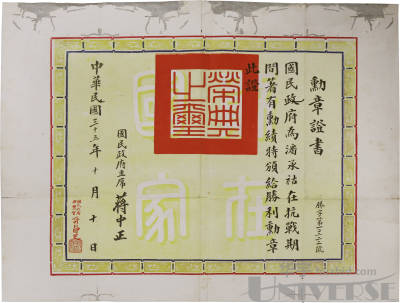 勳章證書
國民政府為潘承祜在抗戰期
間著有勳績特頒給勝利勳章
此證
勝字第號
榮典之璽
國民政府主席 蔣中正
中華民國三十年十月十日
國家
UNIVERSE